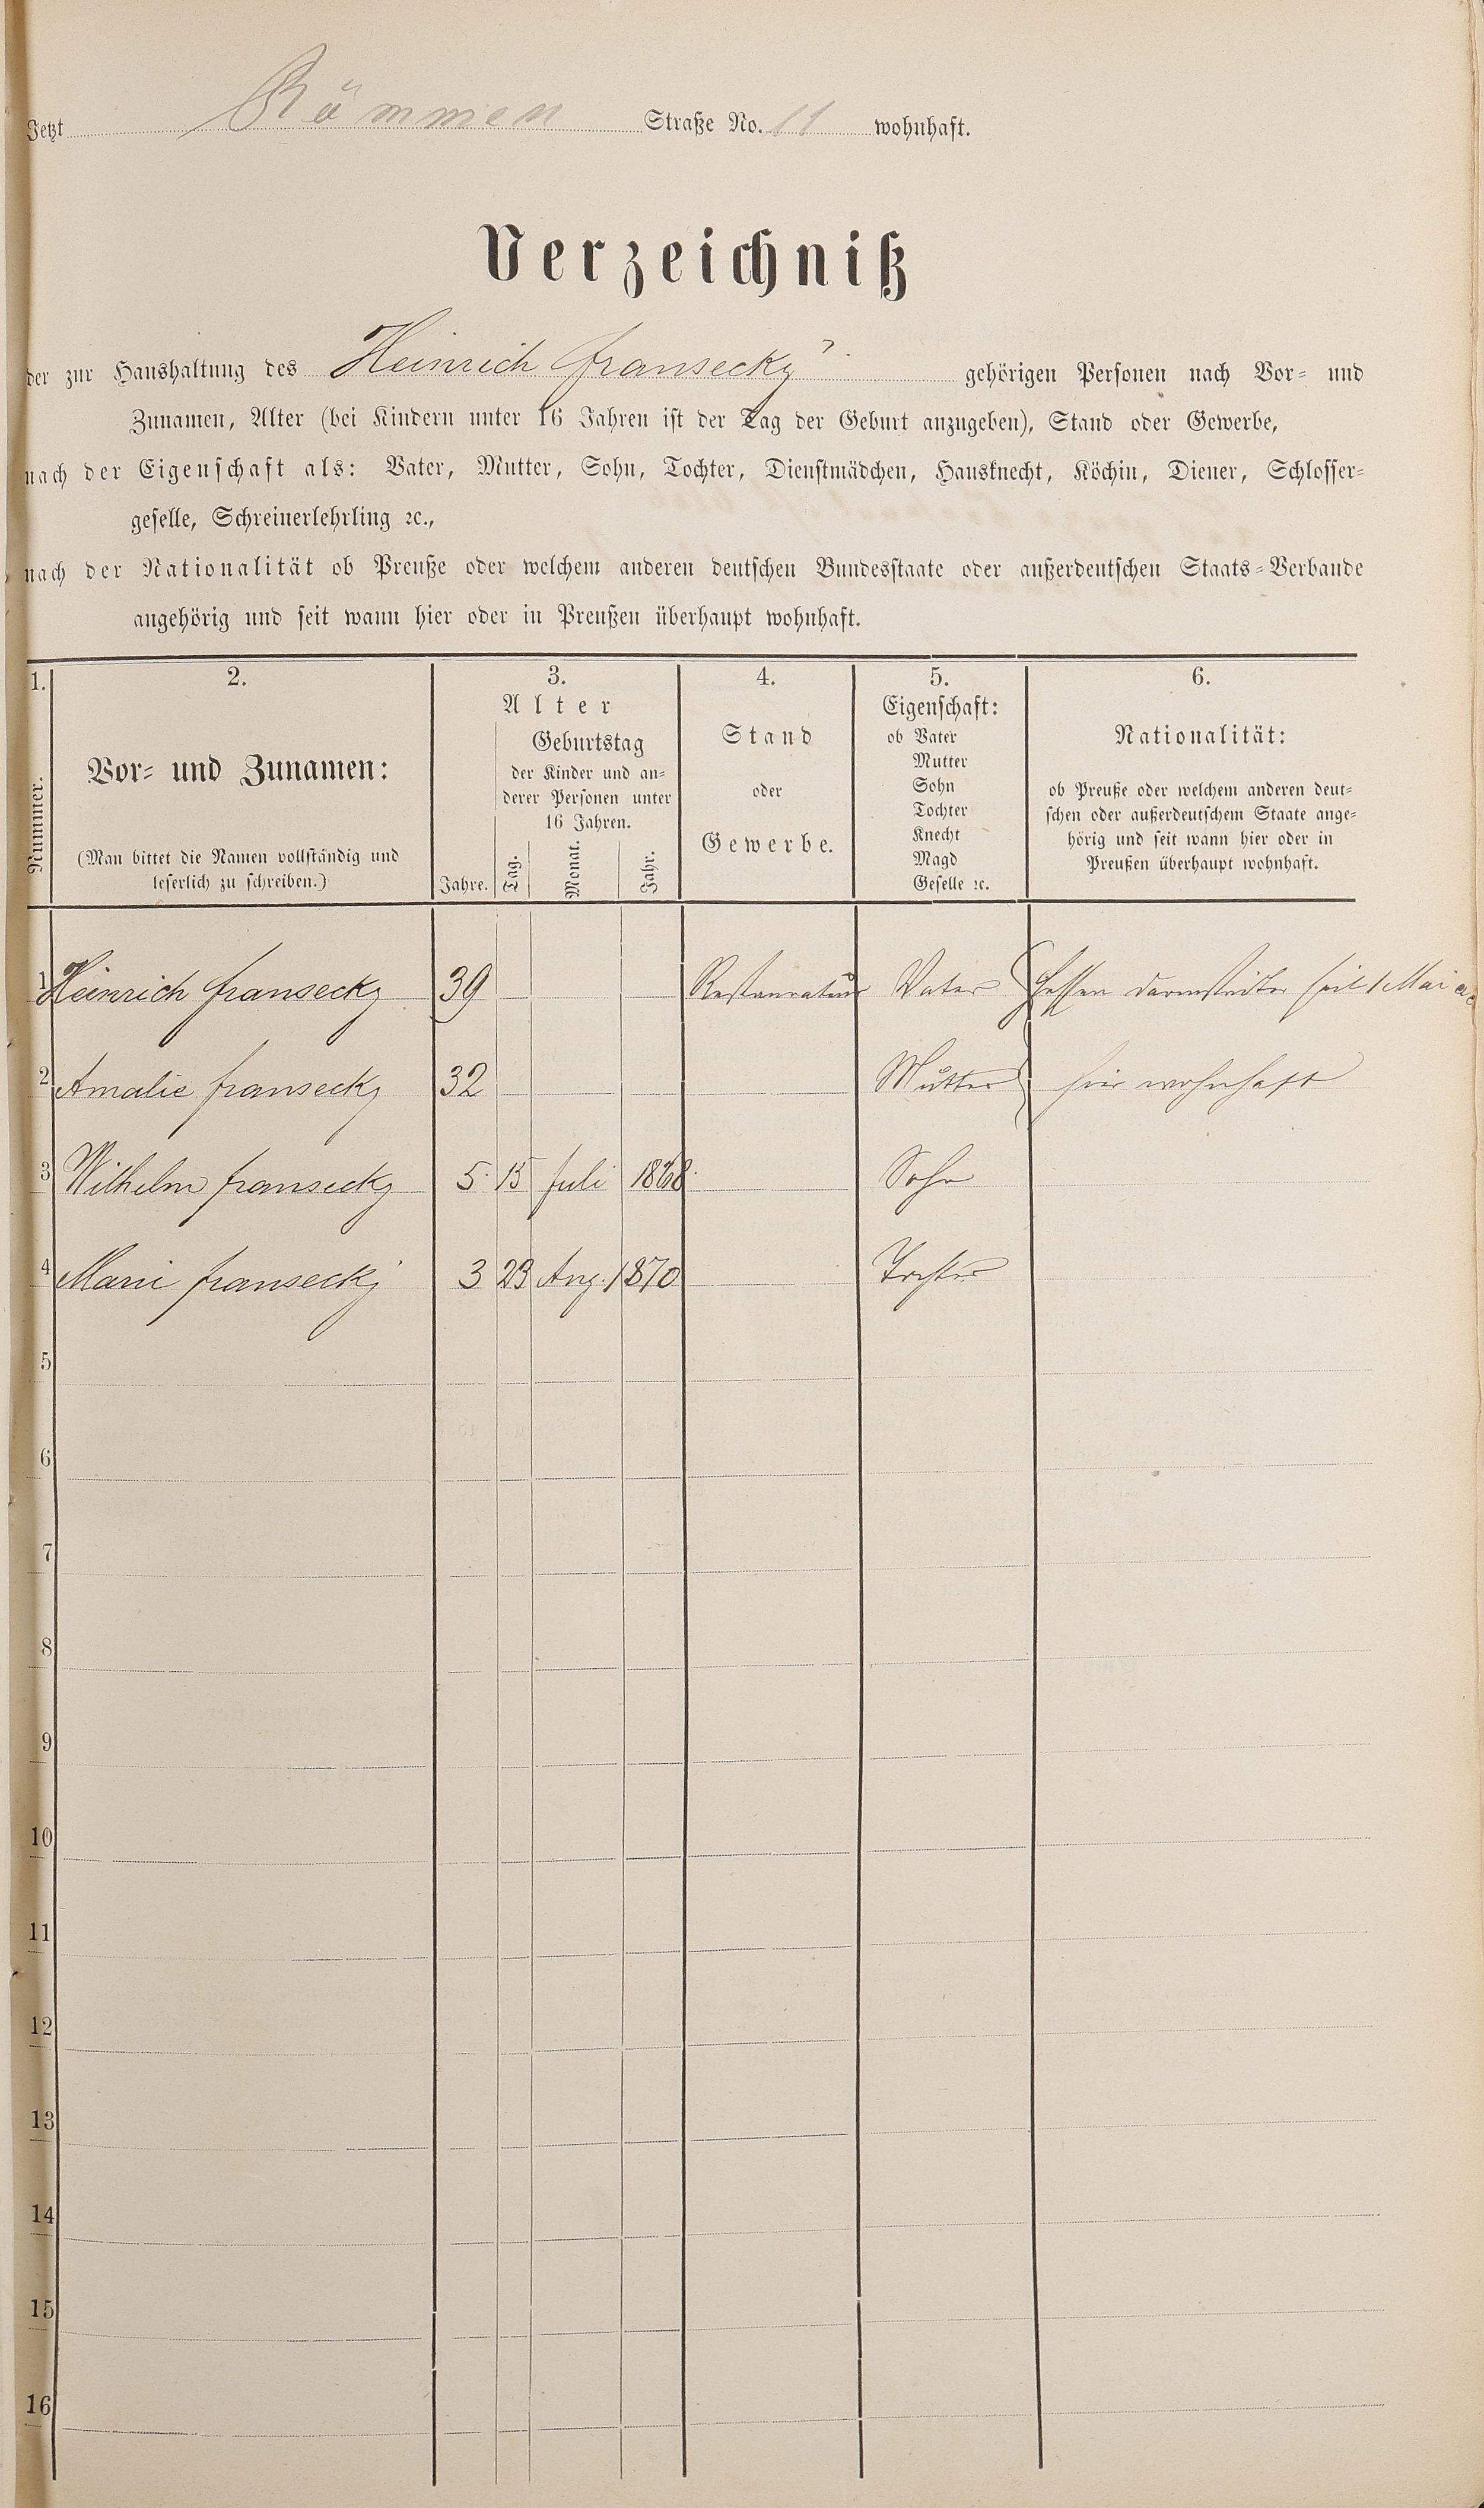 Jetzt Kämmen Straße No. 11 wohnhaft.
Verzeichniß
der zur Haushaltung des Heinrich Fransecky gehörigen Personen nach Vor- und
Zunamen, Alter (bei Kindern unter 16 Jahren ist der Tag der Geburt anzugeben), Stand oder Gewerbe,
nach der Eigenschaft als: Vater, Mutter, Sohn, Tochter, Dienstmädchen, Hausknecht, Köchin, Diener, Schlosser-
geselle, Schreinerlehrling ꝛc.,
nach der Nationalität ob Preuße oder welchem anderen deutschen Bundesstaate oder außerdeutschen Staats-Verbande
angehörig und seit wann hier oder in Preußen überhaupt wohnhaft.
1. Nummer.
2.
Vor- und Zunamen:
(Man bittet die Namen vollständig und
leserlich zu schreiben.)
3.
Alter
Jahre.
Geburtstag
der Kinder und an-
derer Personen unter
16 Jahren.
Tag. Monat. Jahr.
4.
Stand
oder
Gewerbe.
5.
Eigenschaft:
ob Vater
Mutter
Sohn
Tochter
Knecht
Magd
Geselle ꝛc.
6.
Nationalität:
ob Preuße oder welchem anderen deut-
schen oder außerdeutschem Staate ange-
hörig und seit wann hier oder in
Preußen überhaupt wohnhaft.
1 Heinrich Fransecky 39 Restaurateur Vater Hessen darmstädter seit 1 Mai
2 Amalie Fransecky 32 Mutter hier wohnhaft
3 Wilhelm Fransecky 5 15 Juli 1868 Sohn
4 Marie Fransecky 3 23 Aug. 1870 Tochter
5
6
7
8
9
10
11
12
13
14
15
16